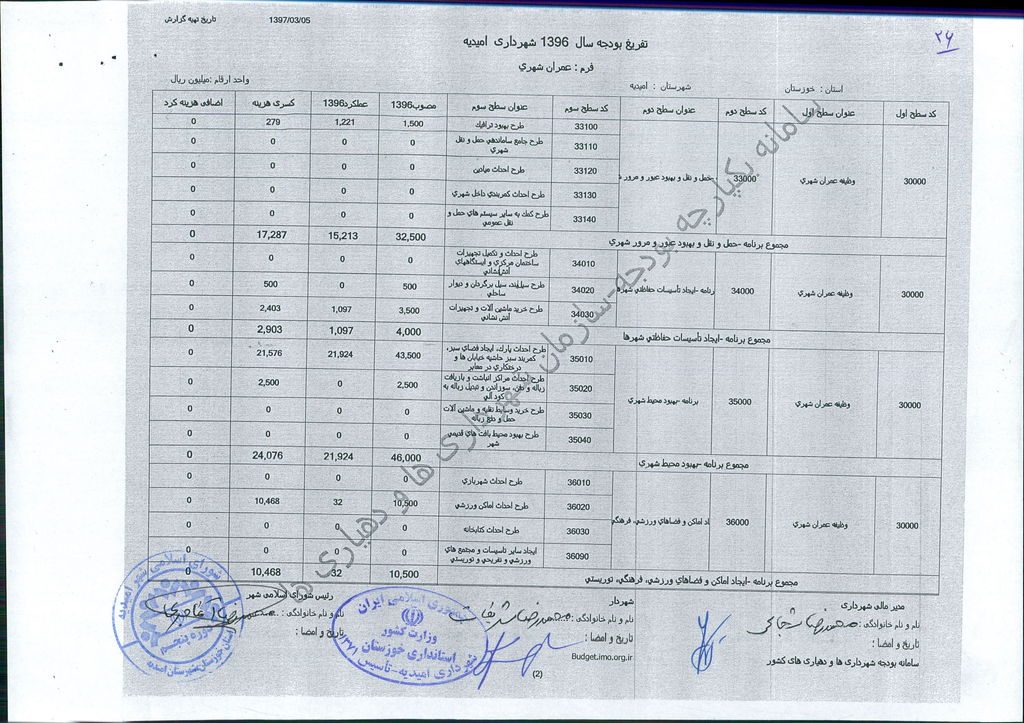 تاریخ تهیه گزارش 1397/03/05
۲۶
تفریغ بودجه سال 1396 شهرداری امیدیه
فرم : عمران شهري
استان : خوزستان شهرستان : امیدیه واحد ارقام :میلیون ریال
کد سطح اول عنوان سطح اول کد سطح دوم عنوان سطح دوم کد سطح سوم عنوان سطح سوم مصوب1396 عملکرد1396 کسری هزینه اضافی هزینه کرد
30000 وظیفه عمران شهري 33000 -حمل و نقل و بهبود عبور و مرور
33100 طرح بهبود ترافیك 1,500 1,221 279 0
33110 طرح جامع ساماندهي حمل و نقل شهري 0 0 0 0
33120 طرح احداث میادین 0 0 0 0
33130 طرح احداث کمربندي داخل شهري 0 0 0 0
33140 طرح کمك به سایر سیستم هاي حمل و نقل عمومي 0 0 0 0
مجموع برنامه -حمل و نقل و بهبود عبور و مرور شهري 32,500 15,213 17,287 0
30000 وظیفه عمران شهري 34000 برنامه -ایجاد تأسیسات حفاظتي شهرها
34010 طرح احداث و تکمیل تجهیزات ساختمان مرکزي و ایستگاههاي آتش‌نشاني 0 0 0 0
34020 طرح سیل‌بند، سیل برگردان و دیوار ساحلي 500 0 500 0
34030 طرح خرید ماشین آلات و تجهیزات آتش نشاني 3,500 1,097 2,403 0
مجموع برنامه -ایجاد تأسیسات حفاظتي شهرها 4,000 1,097 2,903 0
30000 وظیفه عمران شهري 35000 برنامه -بهبود محیط شهري
35010 طرح احداث پارك، ایجاد فضاي سبز، کمربند سبز حاشیه خیابان ها و درختکاري در معابر 43,500 21,924 21,576 0
35020 طرح احداث مراکز انباشت و بازیافت زباله و دفن، سوزاندن و تبدیل زباله به کود آلي 2,500 0 2,500 0
35030 طرح خرید وسایط نقلیه و ماشین آلات حمل و دفع زباله 0 0 0 0
35040 طرح بهبود محیط بافت هاي قدیمي شهر 0 0 0 0
مجموع برنامه -بهبود محیط شهري 46,000 21,924 24,076 0
30000 وظیفه عمران شهري 36000 اد اماکن و فضاهاي ورزشي، فرهنگي
36010 طرح احداث شهربازي 0 0 0 0
36020 طرح احداث اماکن ورزشي 10,500 32 10,468 0
36030 طرح احداث کتابخانه 0 0 0 0
36090 ایجاد سایر تاسیسات و مجتمع هاي ورزشي و تفریحي و توریستي 0 0 0 0
مجموع برنامه -ایجاد اماکن و فضاهاي ورزشي، فرهنگي، توریستي 10,500 32 10,468 0
سامانه یکپارچه بودجه-سازمان شهرداری ها و دهیاری ها
مدیر مالی شهرداری شهردار رئیس شورای اسلامی شهر
نام و نام خانوادگی : نام و نام خانوادگی : نام و نام خانوادگی :
تاریخ و امضا : تاریخ و امضا : تاریخ و امضا :
سامانه بودجه شهرداری ها و دهیاری های کشور Budget.imo.org.ir
(2)
جمهوری اسلامی ایران
وزارت کشور
استانداری خوزستان
شهرداری امیدیه-تأسیس
شورای اسلامی شهر امیدیه
دوره پنجم
استان خوزستان-شهرستان امیدیه